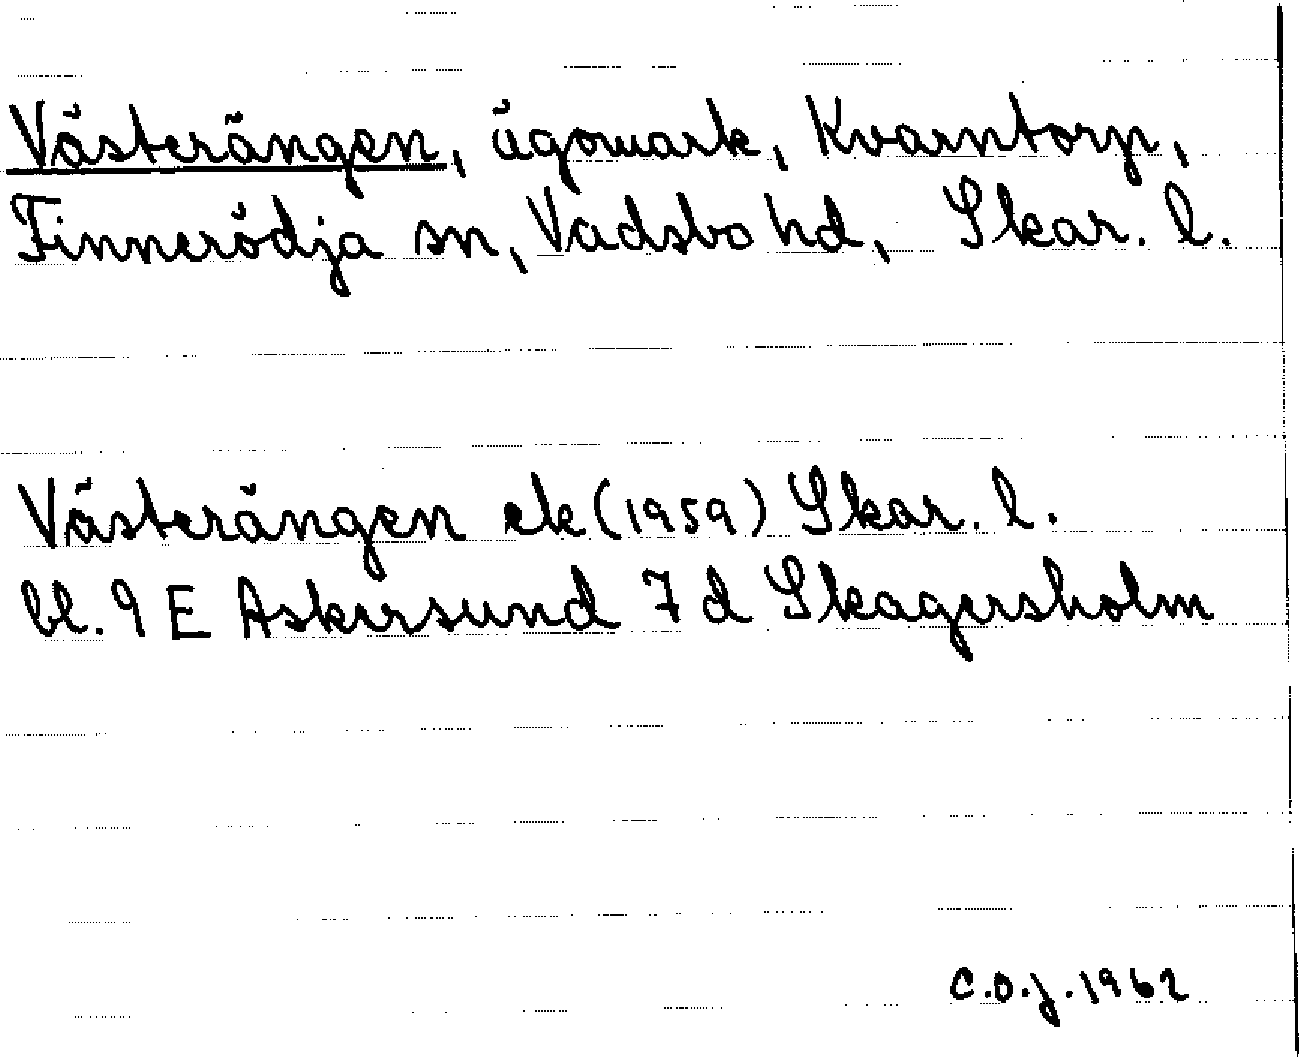 Västerängen, ägomark, Kvarntorp,
Finnerödja sn, Vadsbo hd, Skar. l.
Västerängen ek (1959) Skar. l.
bl. 9 E Askersund 7 d Skagersholm
C.O.J. 1962